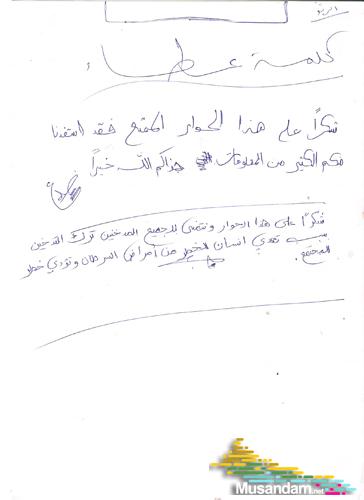 كلمة عطاء
شكراً على هذا الحوار الممتع فقد استفدنا
منكم الكثير من المعلومات جزاكم الله خيراً
شكراً على هذا الحوار ونتمنى للجميع المدخنين ترك التدخين
تهدي انسان للخطر من أمراض السرطان وتؤدي خطر
المجتمع.
Musandam.net